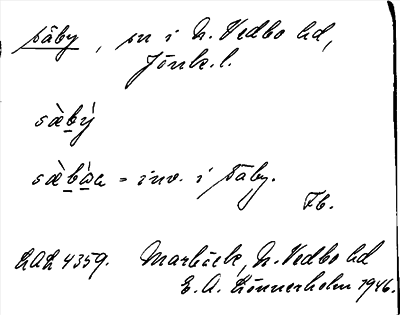 Säby, sn i N. Vedbo hd,
Jönk. l.
sä̀bý
sä̀bòa = inv. i Säby.
Fb.
LAL 4359. Marbäck, N. Vedbo hd
E. A. Lönnerholm 1946.